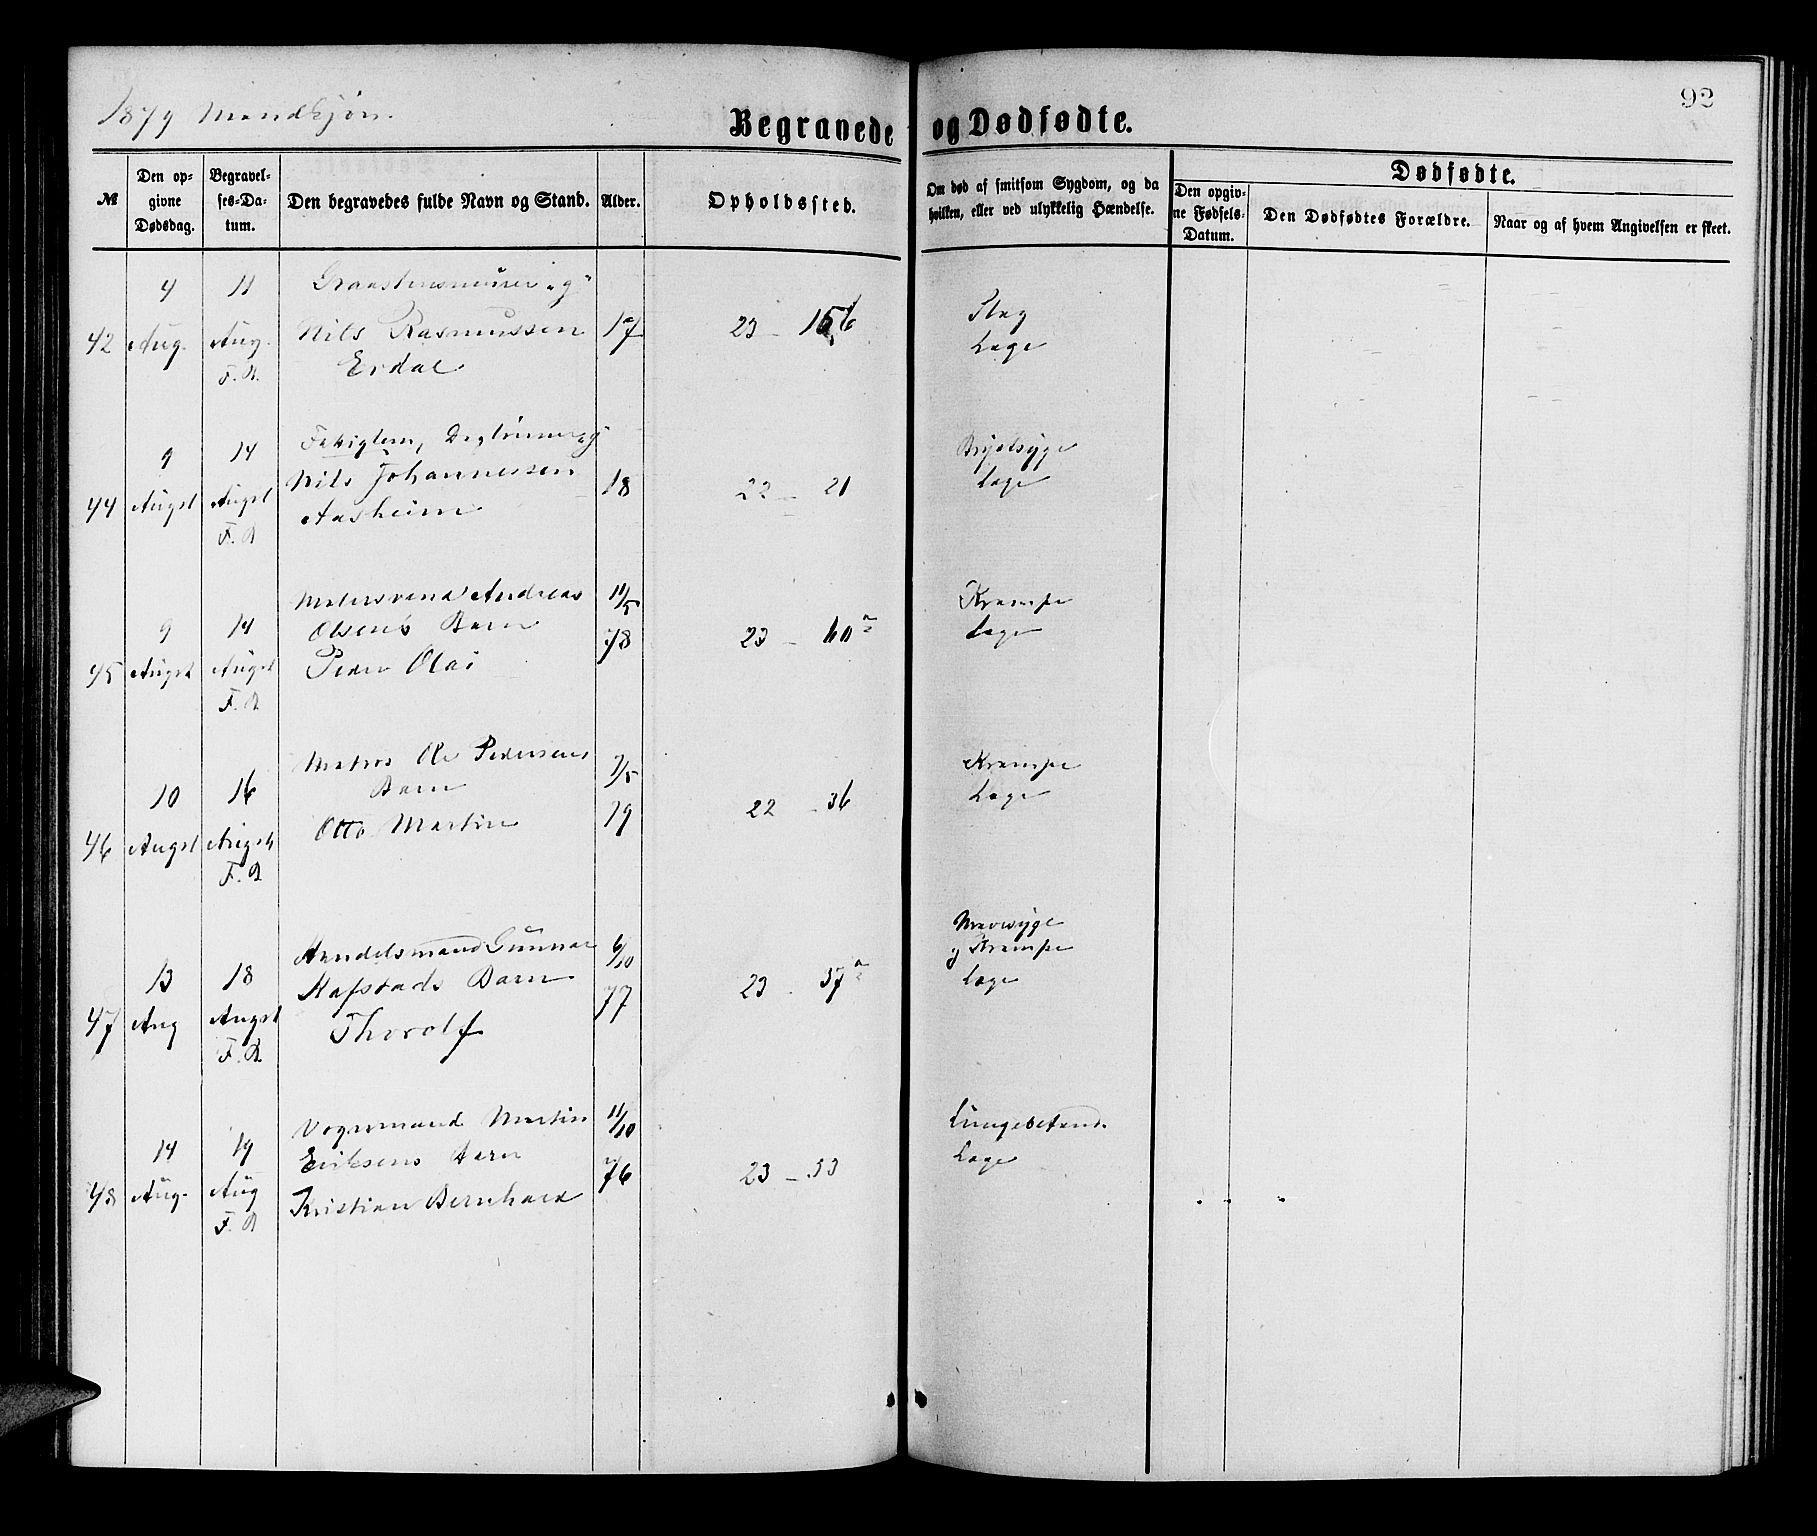 1879 Mandkjøn.
92
Begravede og Dødfødte.
№
Den opgivne Dødsdag.
Begravelses-Datum.
Den begravedes fulde Navn og Stand.
Alder.
Opholdssted.
Om død af smitsom Sygdom, og da hvilken, eller ved ulykkelig Hændelse.
Dødfødte.
Den opgivne Fødsels-Datum.
Den Dødfødtes Forældre.
Naar og af hvem Angivelsen er skeet.
4 11 Graastensmurer „g“
42 Aug. Aug. Nils Rasmussen 17 23 –
F. R. Erdal
Slag
Læge
9 14 Fattiglem,
44 Augst Augst Nils Johannessen 18 22 – 21
F. R Aasheim
Brystsyge
Læge
Andreas 11/5
9 14 Olsens Barn 78 23 – 60 a
45 Augst Augst Peder Olai
F. R
Krampe
Læge
Matros Ole Pedersens 7/5
10 16 Barn 79 22 – 36
46 Augst Augst Otto Martin
F. R
Krampe
Læge
Handelsmand Gunnar 6/10
13 18 Hafstads Barn 77 23 – 37 a
47 Aug Augst Thorolf
F. R.
Mavesyge
g Krampe
Læge
Vognmand Martin 11/10
14 19 Eriksens Barn 76 23 – 33
48 Aug. Aug Kristian Bernhard
F. R
Lungebetænd.
Læge